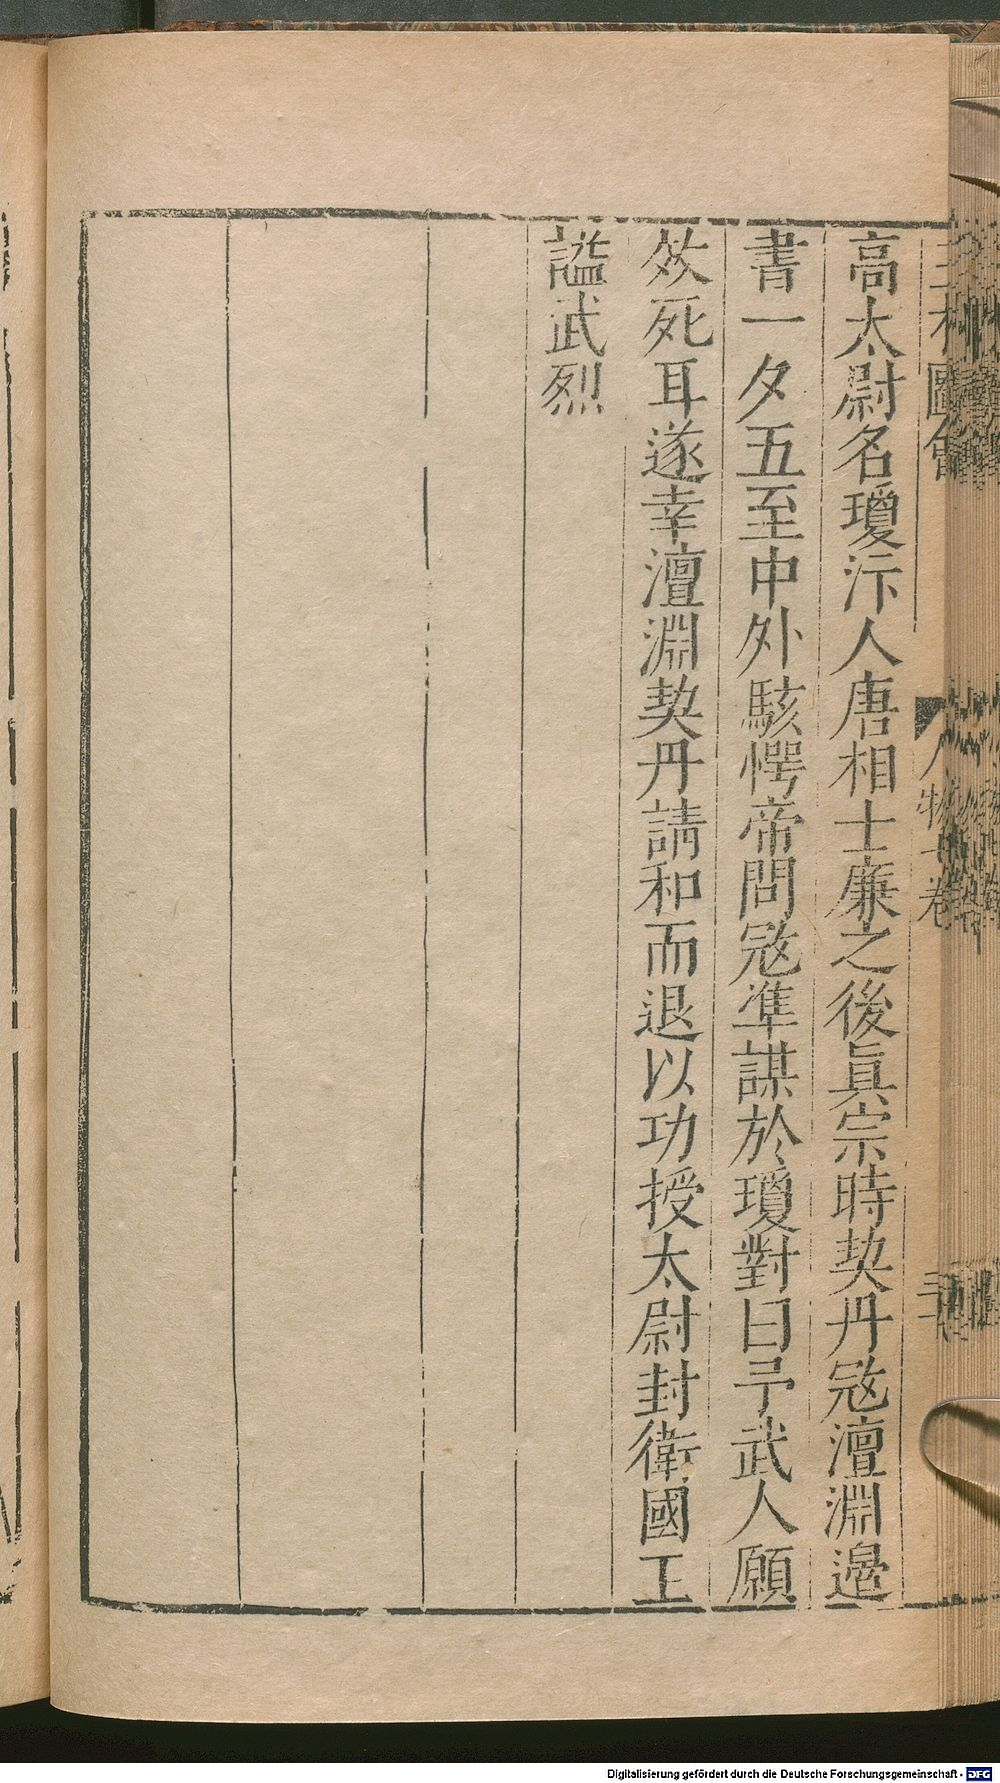 三才圖會
人物七卷
高太尉名瓊汴人唐相士廉之後眞宗時契丹宼澶淵邉
書一夕五至中外駭愕帝問宼準謀於瓊對曰予武人願
效死耳遂幸澶淵契丹請和而退以功授太尉封衛國王
謚武烈
Digitalisierung gefördert durch die Deutsche Forschungsgemeinschaft - DFG